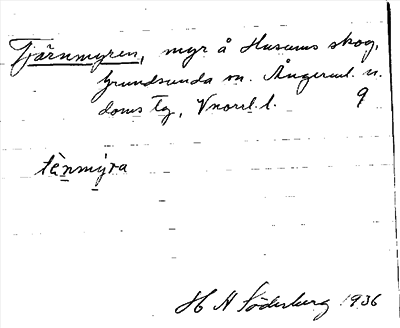 Tjärnmyren, myr å Husums skog,
Grundsunda sn. Ångerml. n.
doms tg, Vnorrl. l. 9
tènmýra
H A Söderberg 1936